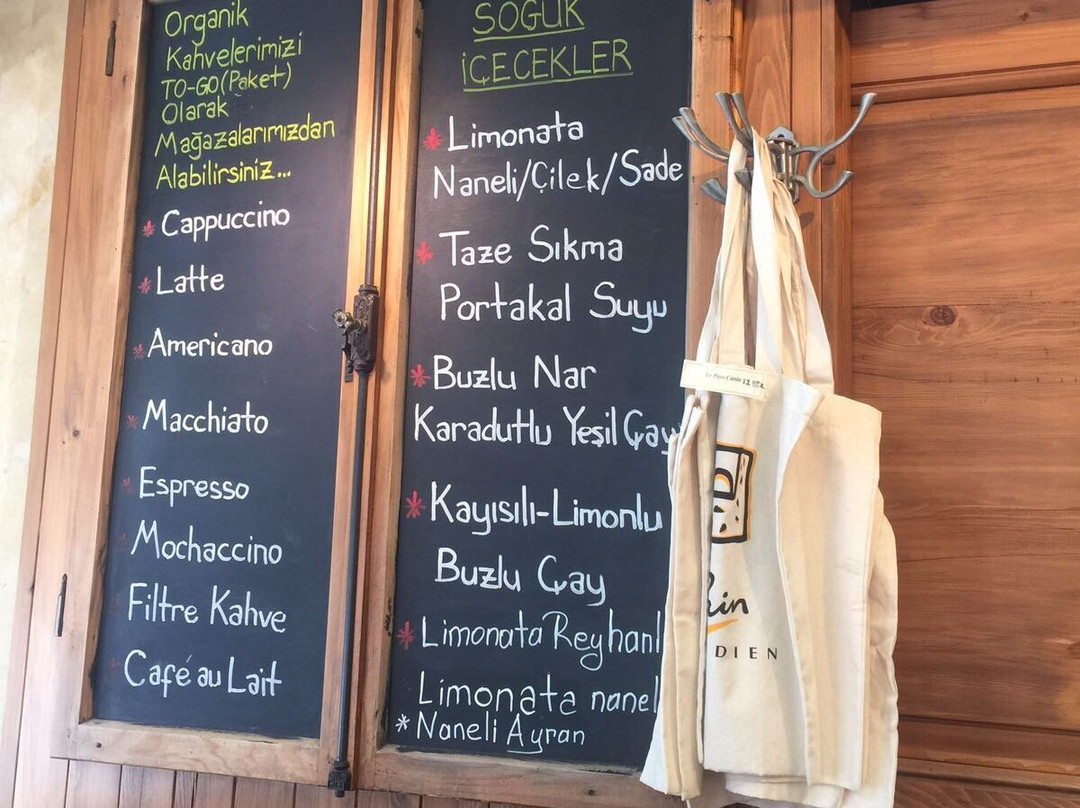 Organik
Kahvelerimizi
TO-GO(Paket)
Olarak
Mağazalarımızdan
Alabilirsiniz...
* Cappuccino
* Latte
* Americano
* Macchiato
* Espresso
Mochaccino
Filtre Kahve
Café au Lait
SOĞUK
İÇECEKLER
* Limonata
Naneli/Çilek/Sade
* Taze Sıkma
Portakal Suyu
* Buzlu Nar
Karadutlu Yeşil Çay
* Kayısılı-Limonlu
Buzlu Çay
* Limonata Reyhanl
Limonata nanel
* Naneli Ayran
DIEN